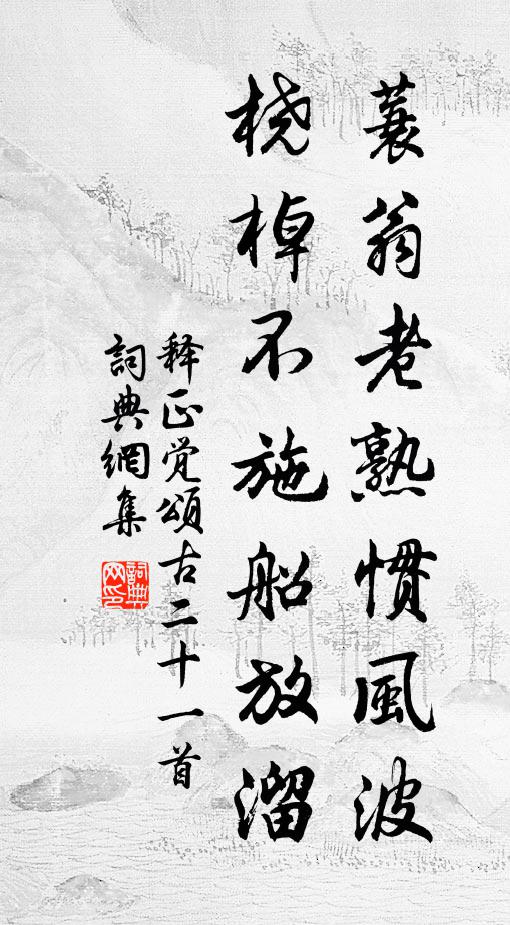 蓑翁老熟慣風波
桡棹不施船放溜
释正觉頌古二十一首
詞典網集
詞典
网印